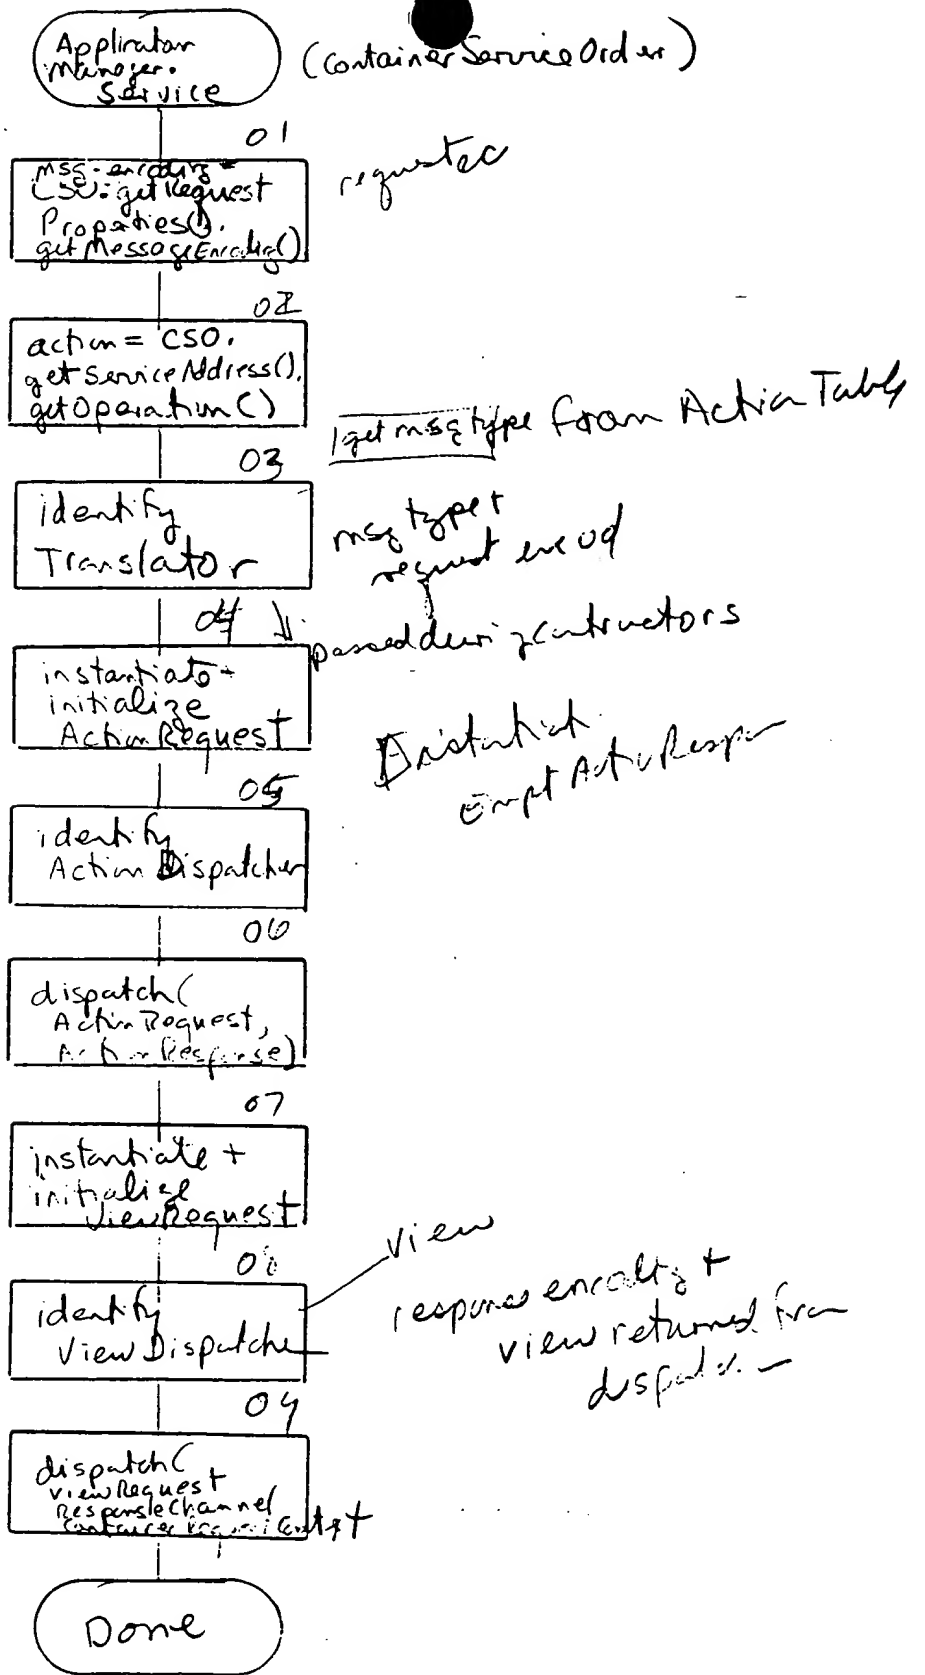 Application
Manager.
Service
(Container Service Order)
01
msg-encoding =
CSO.getRequest
Properties().
getMessageEncoding()
02
action = CSO.
getServiceAddress().
getOperation()
get msg type from Action Table
03
identify
Translator
msg type +
request
04
passed during contructors
instantiate +
initialize
ActionRequest
Instantiate
05
identify
Action Dispatcher
06
dispatch(
ActionRequest,
ActionResponse)
07
instantiate +
initialize
ViewRequest
view
identify
ViewDispatcher
response encoding +
view returned from
09
dispatch(
viewRequest
ResponseChannel
Container
Done